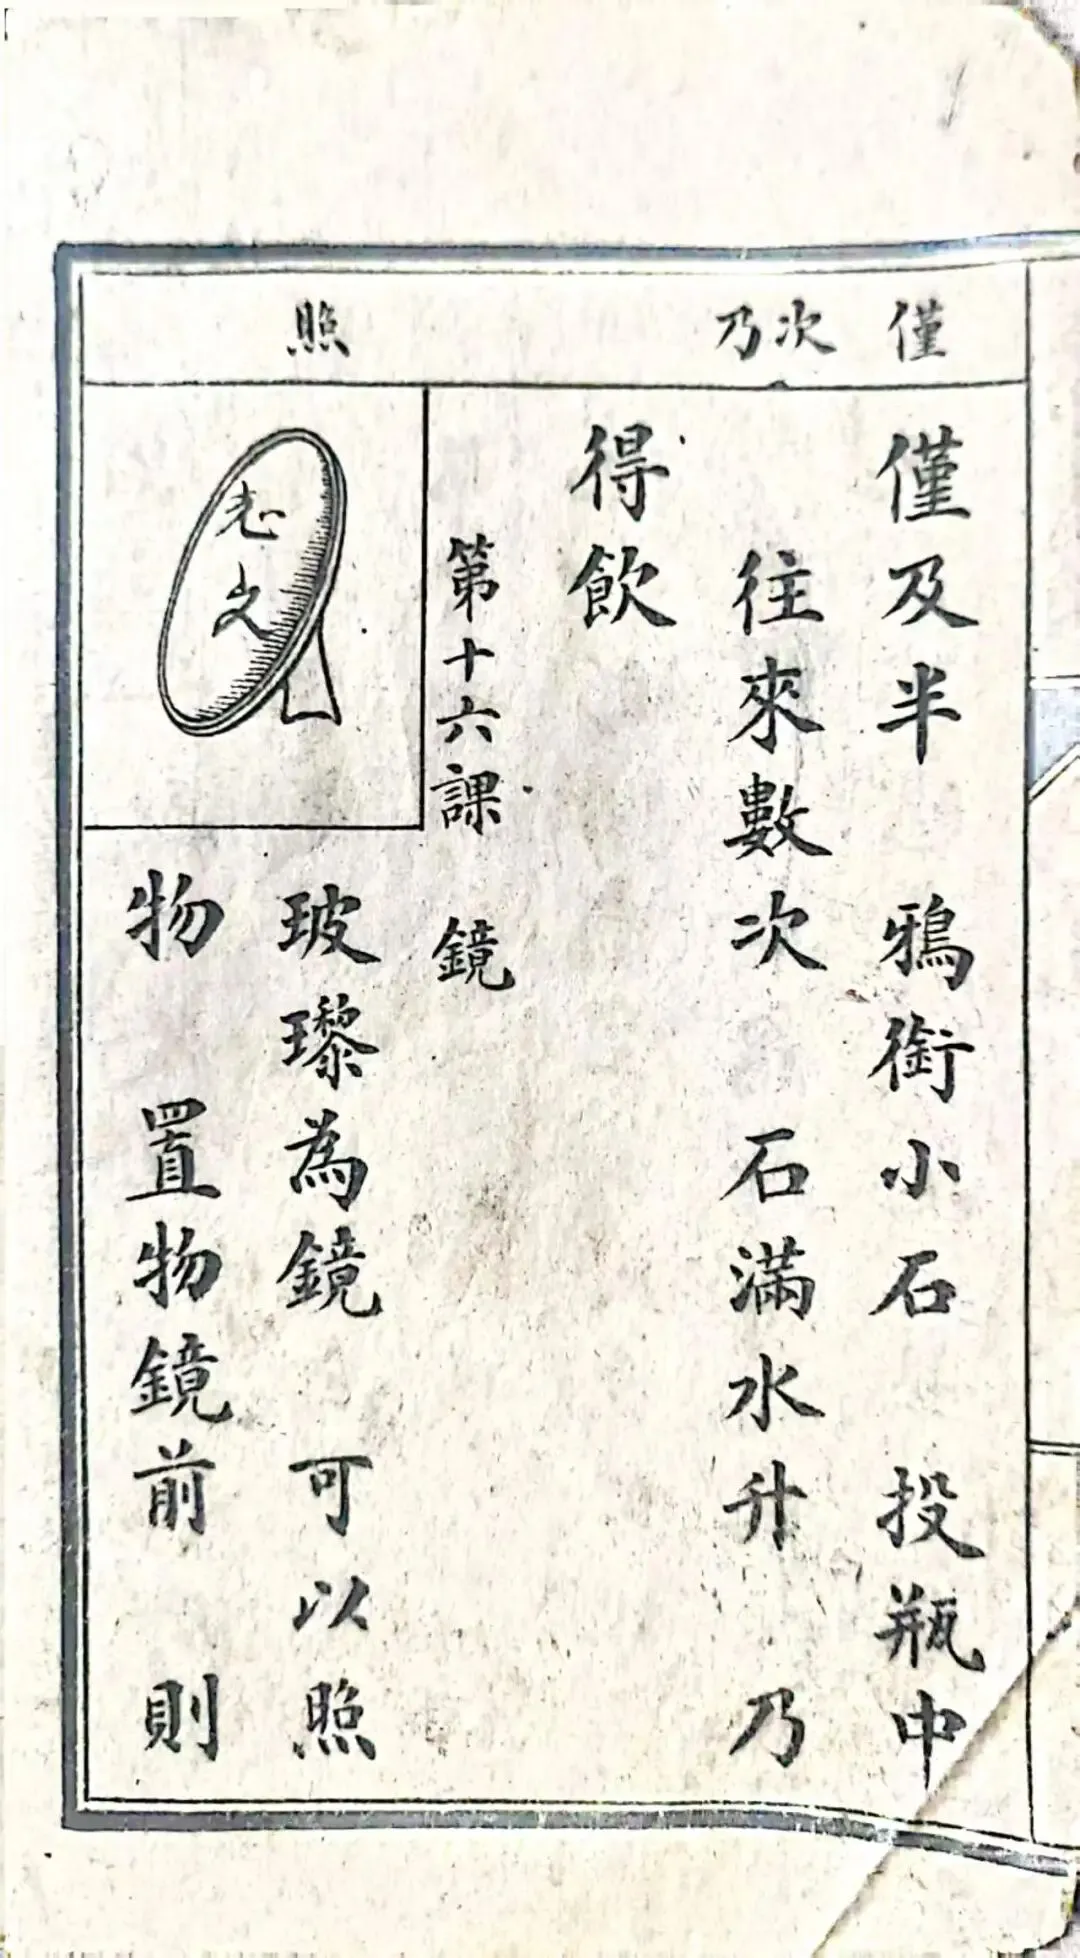 僅
次
乃
照
僅及半 鴉銜小石 投瓶中
往來數次 石滿水升 乃
得飲
第十六課 鏡
玻瓈為鏡 可以照
物 置物鏡前 則